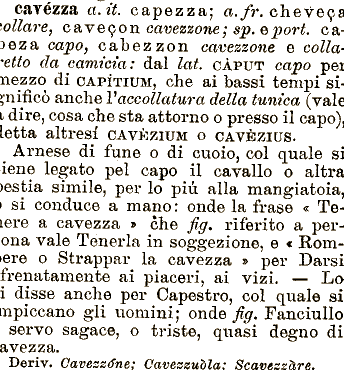 cavézza a. it. capezza; a. fr. cheveça
collare, caveçon cavezzone; sp. e port. ca-
beza capo, cabezzon cavezzone e colla-
retto da camicia: dal lat. CÀPUT capo per
mezzo di CAPÍTIUM, che ai bassi tempi si-
gnificò anche l'accollatura della tunica (vale
a dire, cosa che sta attorno o presso il capo),
detta altresí CAVÈZIUM o CAVÈZIUS.
Arnese di fune o di cuoio, col quale si
tiene legato pel capo il cavallo o altra
bestia simile, per lo piú alla mangiatoia,
o si conduce a mano: onde la frase « Te-
nere a cavezza » che fig. riferito a per-
sona vale Tenerla in soggezione, e « Rom-
pere o Strappar la cavezza » per Darsi
sfrenatamente ai piaceri, ai vizi. — Lo
si disse anche per Capestro, col quale si
impiccano gli uomini; onde fig. Fanciullo
o servo sagace, o triste, quasi degno di
cavezza.
Deriv. Cavezzóne; Cavezzuòla; Scavezzàre.